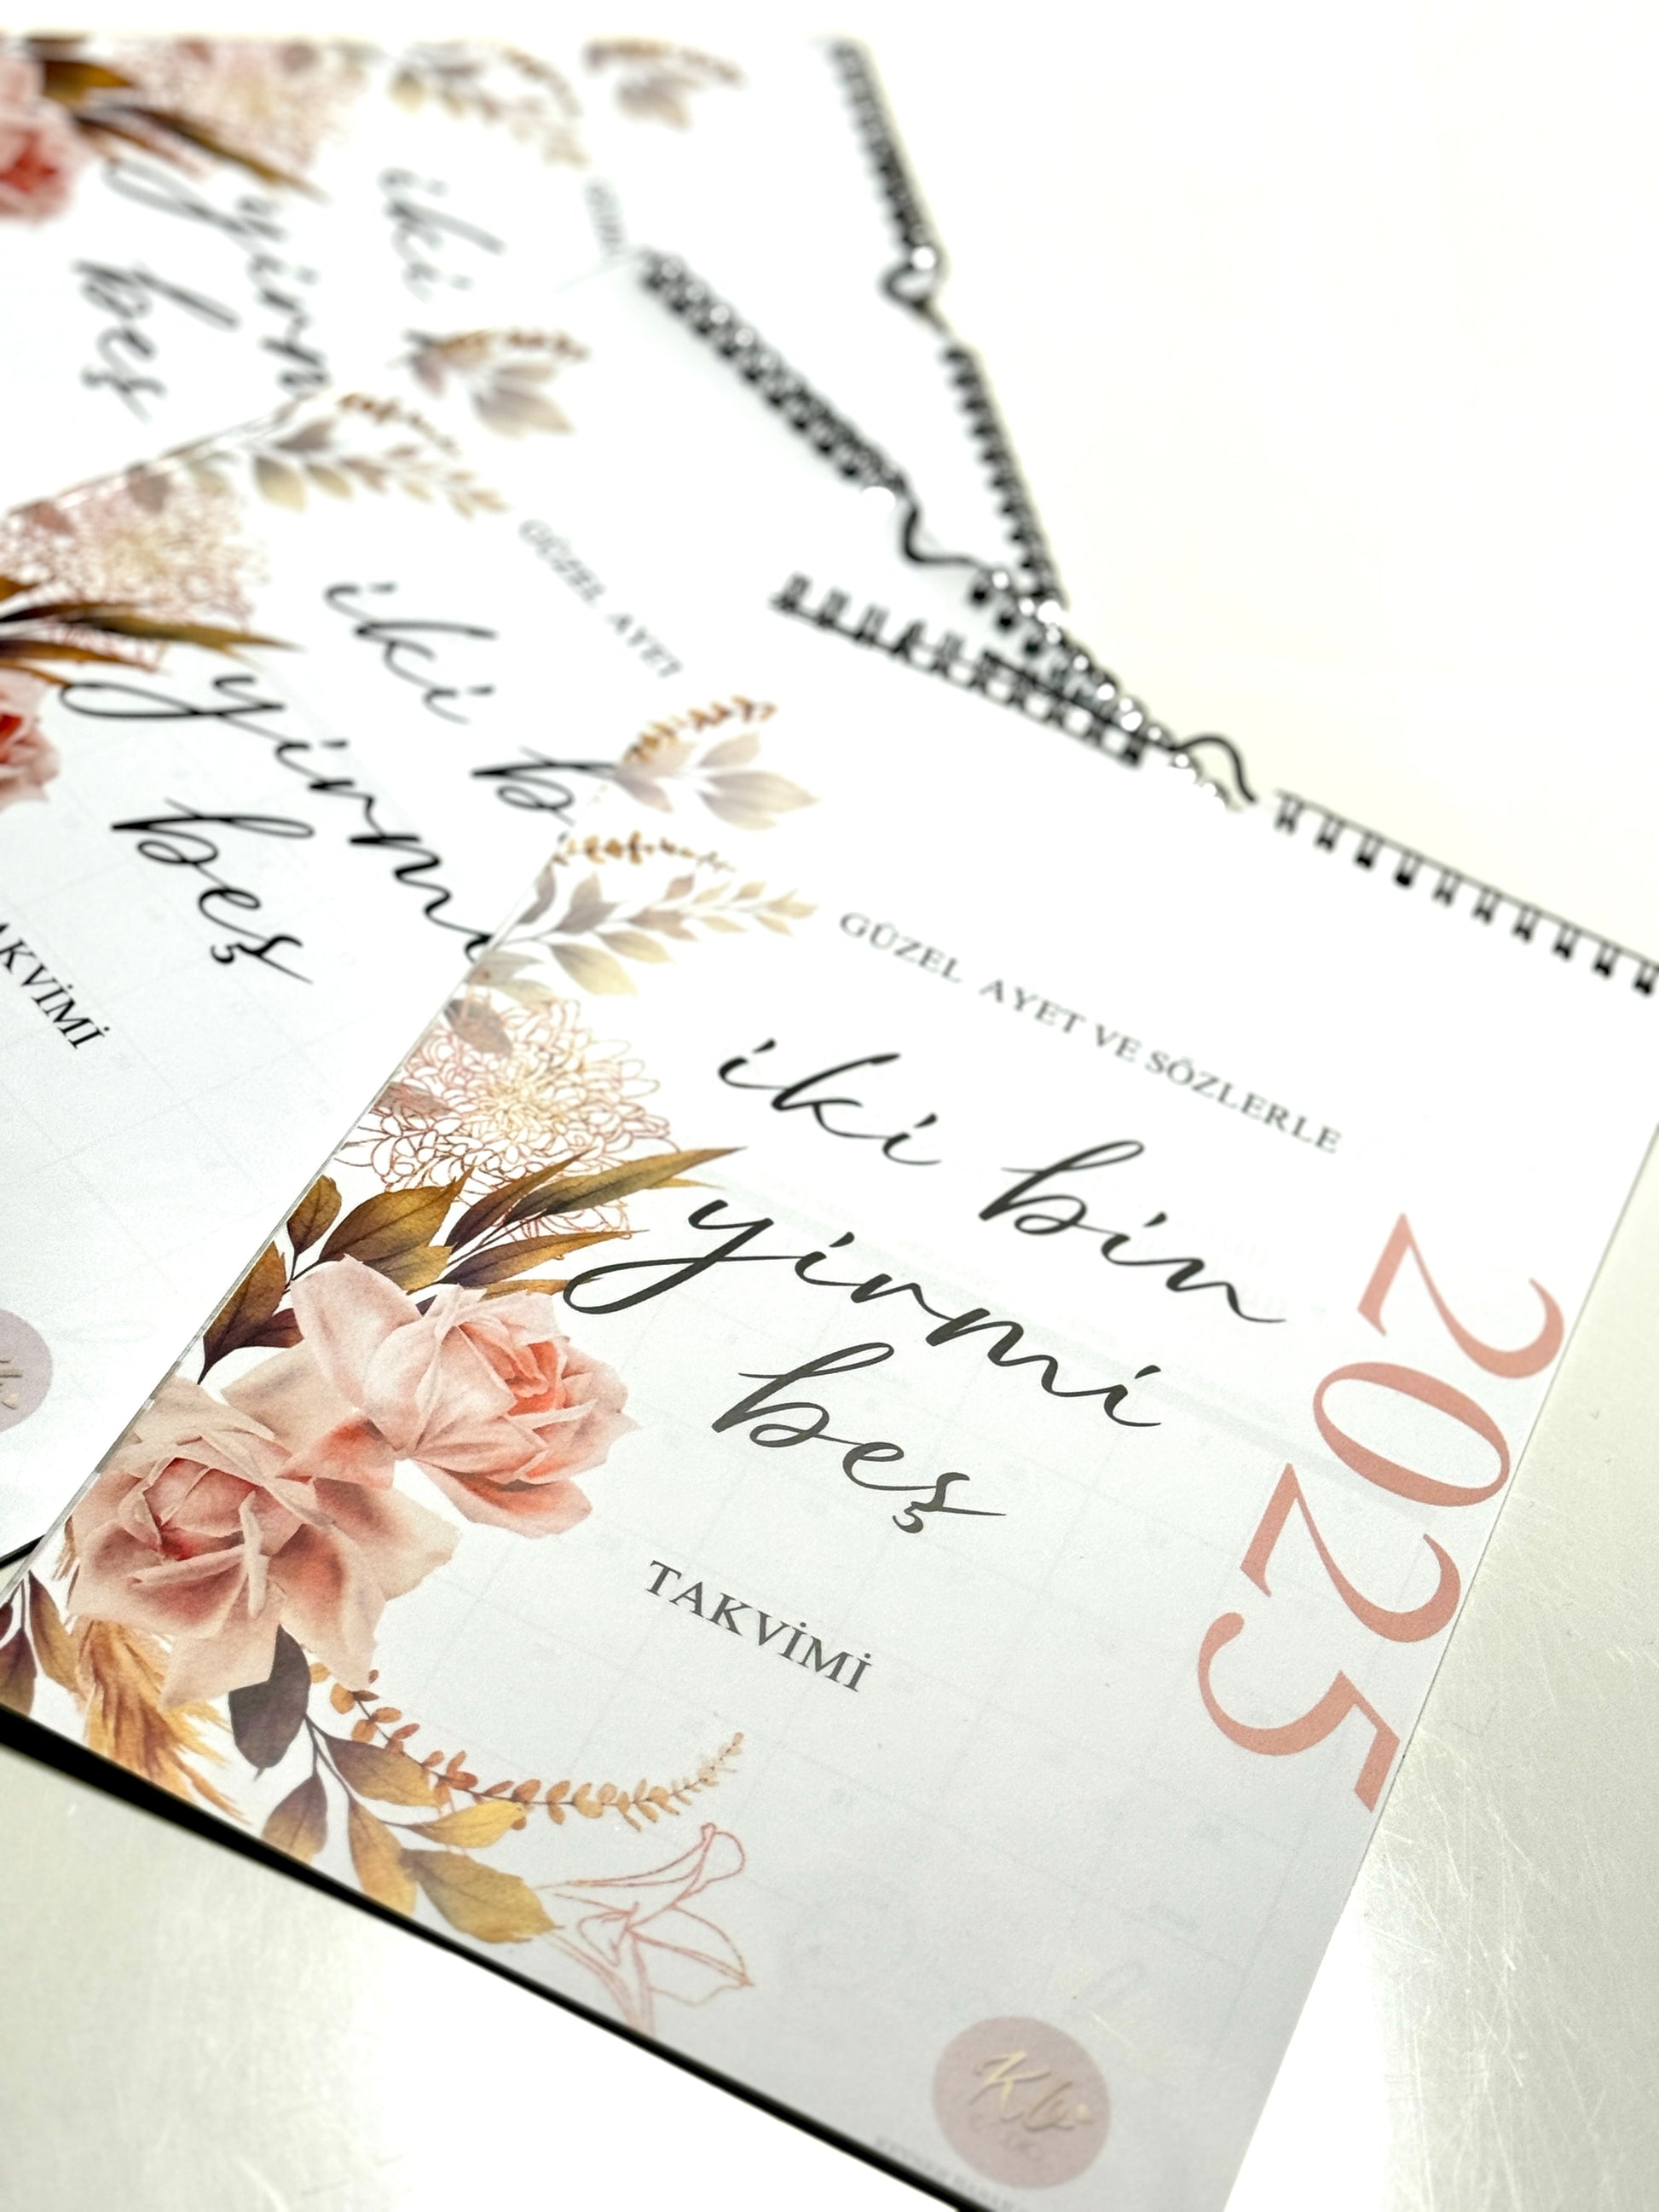 GÜZEL AYET VE SÖZLERLE
iki bin
yirmi
beş
TAKVİMİ
2025
Kb
GÜZEL AYET
iki b
yirmi
beş
AKVİMİ
iki
yirm
beş